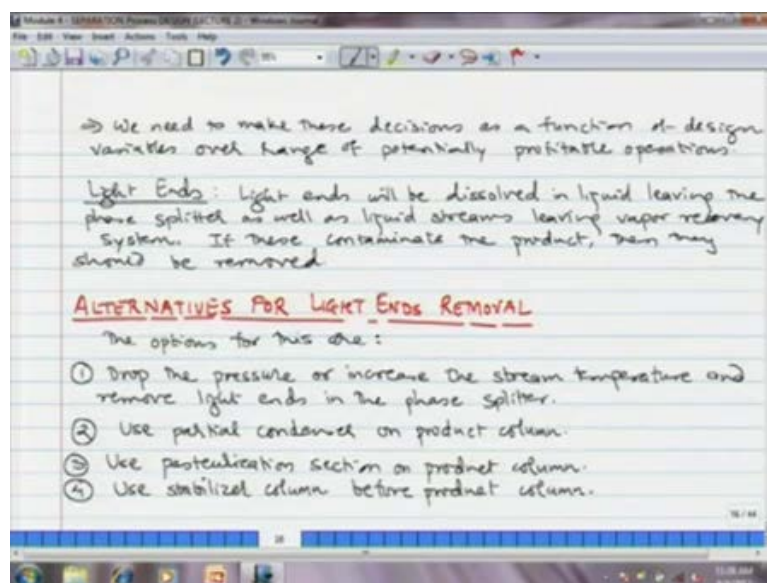 Module 4 - SEPARATION Process DESIGN (LECTURE 2) - Windows Journal
File Edit View Insert Actions Tools Help
⇒ We need to make these decisions as a function of design
variables over range of potentially profitable operations.
Light Ends: Light ends will be dissolved in liquid leaving the
phase splitter as well as liquid streams leaving vapor recovery
system. If these contaminate the product, then they
should be removed
ALTERNATIVES FOR LIGHT ENDS REMOVAL
The options for this are:
① Drop the pressure or increase the stream temperature and
remove light ends in the phase splitter.
② Use partial condenser on product column.
③ Use pasteurization section on product column.
④ Use stabilizer column before product column.
16 / 44